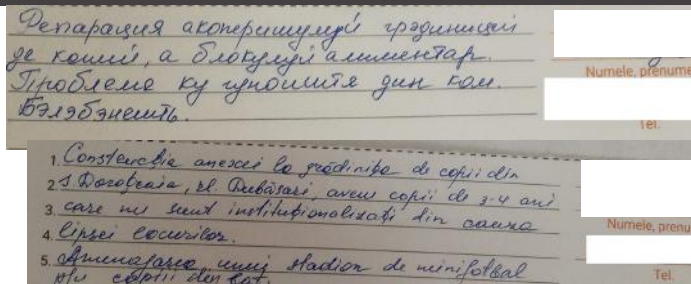 Репарация акоперишулуй грэдиницей
де копий, а блокулуй алиментар.
Проблема ку гуноиштя дин ком.
Бэлэбэнешть.
Numele, prenume
Tel.
1. Construcția anexei la grădinița de copii din
2. s. Doroțcaia, rl. Dubăsari, avem copii de 3-4 ani
3. care nu sunt instituționalizați din cauza
4. lipsei locurilor.
5. Amenajarea unui stadion de minifotbal
p/u copiii din sat.
Numele, prenu
Tel.